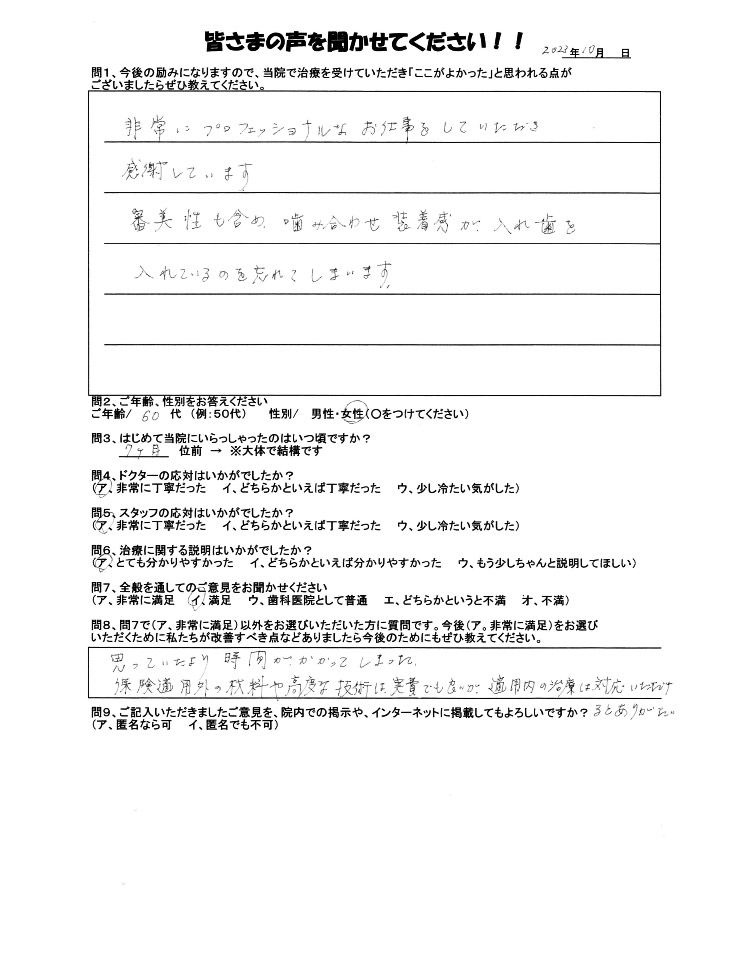 皆さまの声を聞かせてください！！
2023年10月　日
問１、今後の励みになりますので、当院で治療を受けていただき「ここがよかった」と思われる点が
ございましたらぜひ教えてください。
非常にプロフェッショナルなお仕事をしていただき
感謝しています
審美性も含め、噛み合わせ 装着感が、入れ歯を
入れているのを忘れてしまいます。
問２、ご年齢、性別をお答えください
ご年齢/ 60 代 （例：50代）　性別/　男性・女性（○をつけてください）
問３、はじめて当院にいらっしゃったのはいつ頃ですか？
7ヶ月 位前 → ※大体で結構です
問４、ドクターの応対はいかがでしたか？
（ア、非常に丁寧だった　イ、どちらかといえば丁寧だった　ウ、少し冷たい気がした）
問５、スタッフの応対はいかがでしたか？
（ア、非常に丁寧だった　イ、どちらかといえば丁寧だった　ウ、少し冷たい気がした）
問６、治療に関する説明はいかがでしたか？
（ア、とても分かりやすかった　イ、どちらかといえば分かりやすかった　ウ、もう少しちゃんと説明してほしい）
問７、全般を通してのご意見をお聞かせください
（ア、非常に満足　イ、満足　ウ、歯科医院として普通　エ、どちらかというと不満　オ、不満）
問８、問７で（ア、非常に満足）以外をお選びいただいた方に質問です。今後（ア。非常に満足）をお選び
いただくために私たちが改善すべき点などありましたら今後のためにもぜひ教えてください。
思っていたより時間がかかってしまった。
保険適用外の材料や高度な技術は、実費でも良いが、適用内の治療は対応いただけ
るとありがたい
問９、ご記入いただきましたご意見を、院内での掲示や、インターネットに掲載してもよろしいですか？
（ア、匿名なら可　イ、匿名でも不可）